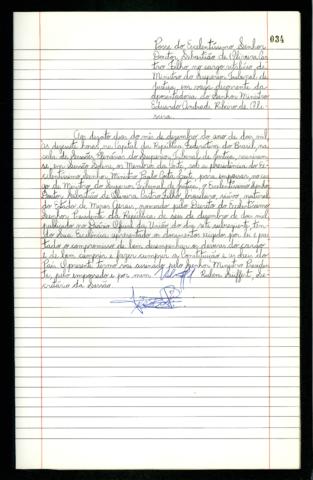 034
Posse do Excelentíssimo Senhor
Doutor Sebastião de Oliveira Cas
tro Filho, no cargo vitalício de
Ministro do Superior Tribunal de
Justiça, em vaga decorrente da
aposentadoria do Senhor Ministro
Eduardo Andrade Ribeiro de Oli-
veira.
Aos dezoito dias do mês de dezembro do ano de dois mil,
às dezoito horas, na Capital da República Federativa do Brasil, na
sala de Sessões Plenárias do Superior Tribunal de Justiça, reuniram-
se, em Sessão Solene, os Membros da Corte, sob a presidência do Ex-
celentíssimo Senhor Ministro Paulo Costa Leite, para empossar, no car-
go de Ministro do Superior Tribunal de Justiça, o Excelentíssimo Senhor
Doutor Sebastião de Oliveira Castro Filho, brasileiro, natural
do Estado de Minas Gerais, nomeado pelo Decreto do Excelentíssimo
Senhor Presidente da República, de seis de dezembro de dois mil,
publicado no Diário Oficial da União do dia sete subsequente, ten-
do Sua Excelência apresentado os documentos exigidos por lei e pres-
tado o compromisso de bem desempenhar os deveres do cargo
e de bem cumprir e fazer cumprir a Constituição e as leis do
País. O presente termo vai assinado pelo Senhor Ministro Presiden-
te, pelo empossado e por mim, Rubens Rieffel, Se-
cretário da Sessão.